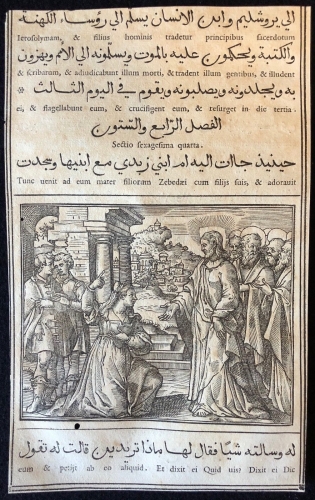 الي يروشليم وابن الانسان يسلم الي روسا، الكهنة
Ierosolymam, & filius hominis tradetur principibus sacerdotum
والكتبة ويحكمون عليه بالموت ويسلّمونه الي الامم ويهزون
& scribarum, & adiudicabunt illum morti, & tradent illum gentibus, & illudent
به ويجلدونه ويصلبونه ويقوم في اليوم الثالث *
ei, & flagellabunt eum, & crucifigent eum, & resurget in die tertia.
الفصل الرابع والستون
Sectio sexagesima quarta.
حينيذ جاات اليه ام ابني زبدي مع ابنيها وسجدت
Tunc uenit ad eum mater filiorum Zebedæi cum filijs suis, & adorauit
له وسالته شيًا فقال لها ماذا تريدين قالت له تقول
eum & petijt ab eo aliquid. Et dixit ei Quid uis? Dixit ei Dic